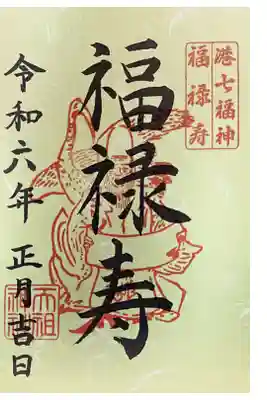 港七福神
福禄寿
福禄寿
令和六年 正月吉日